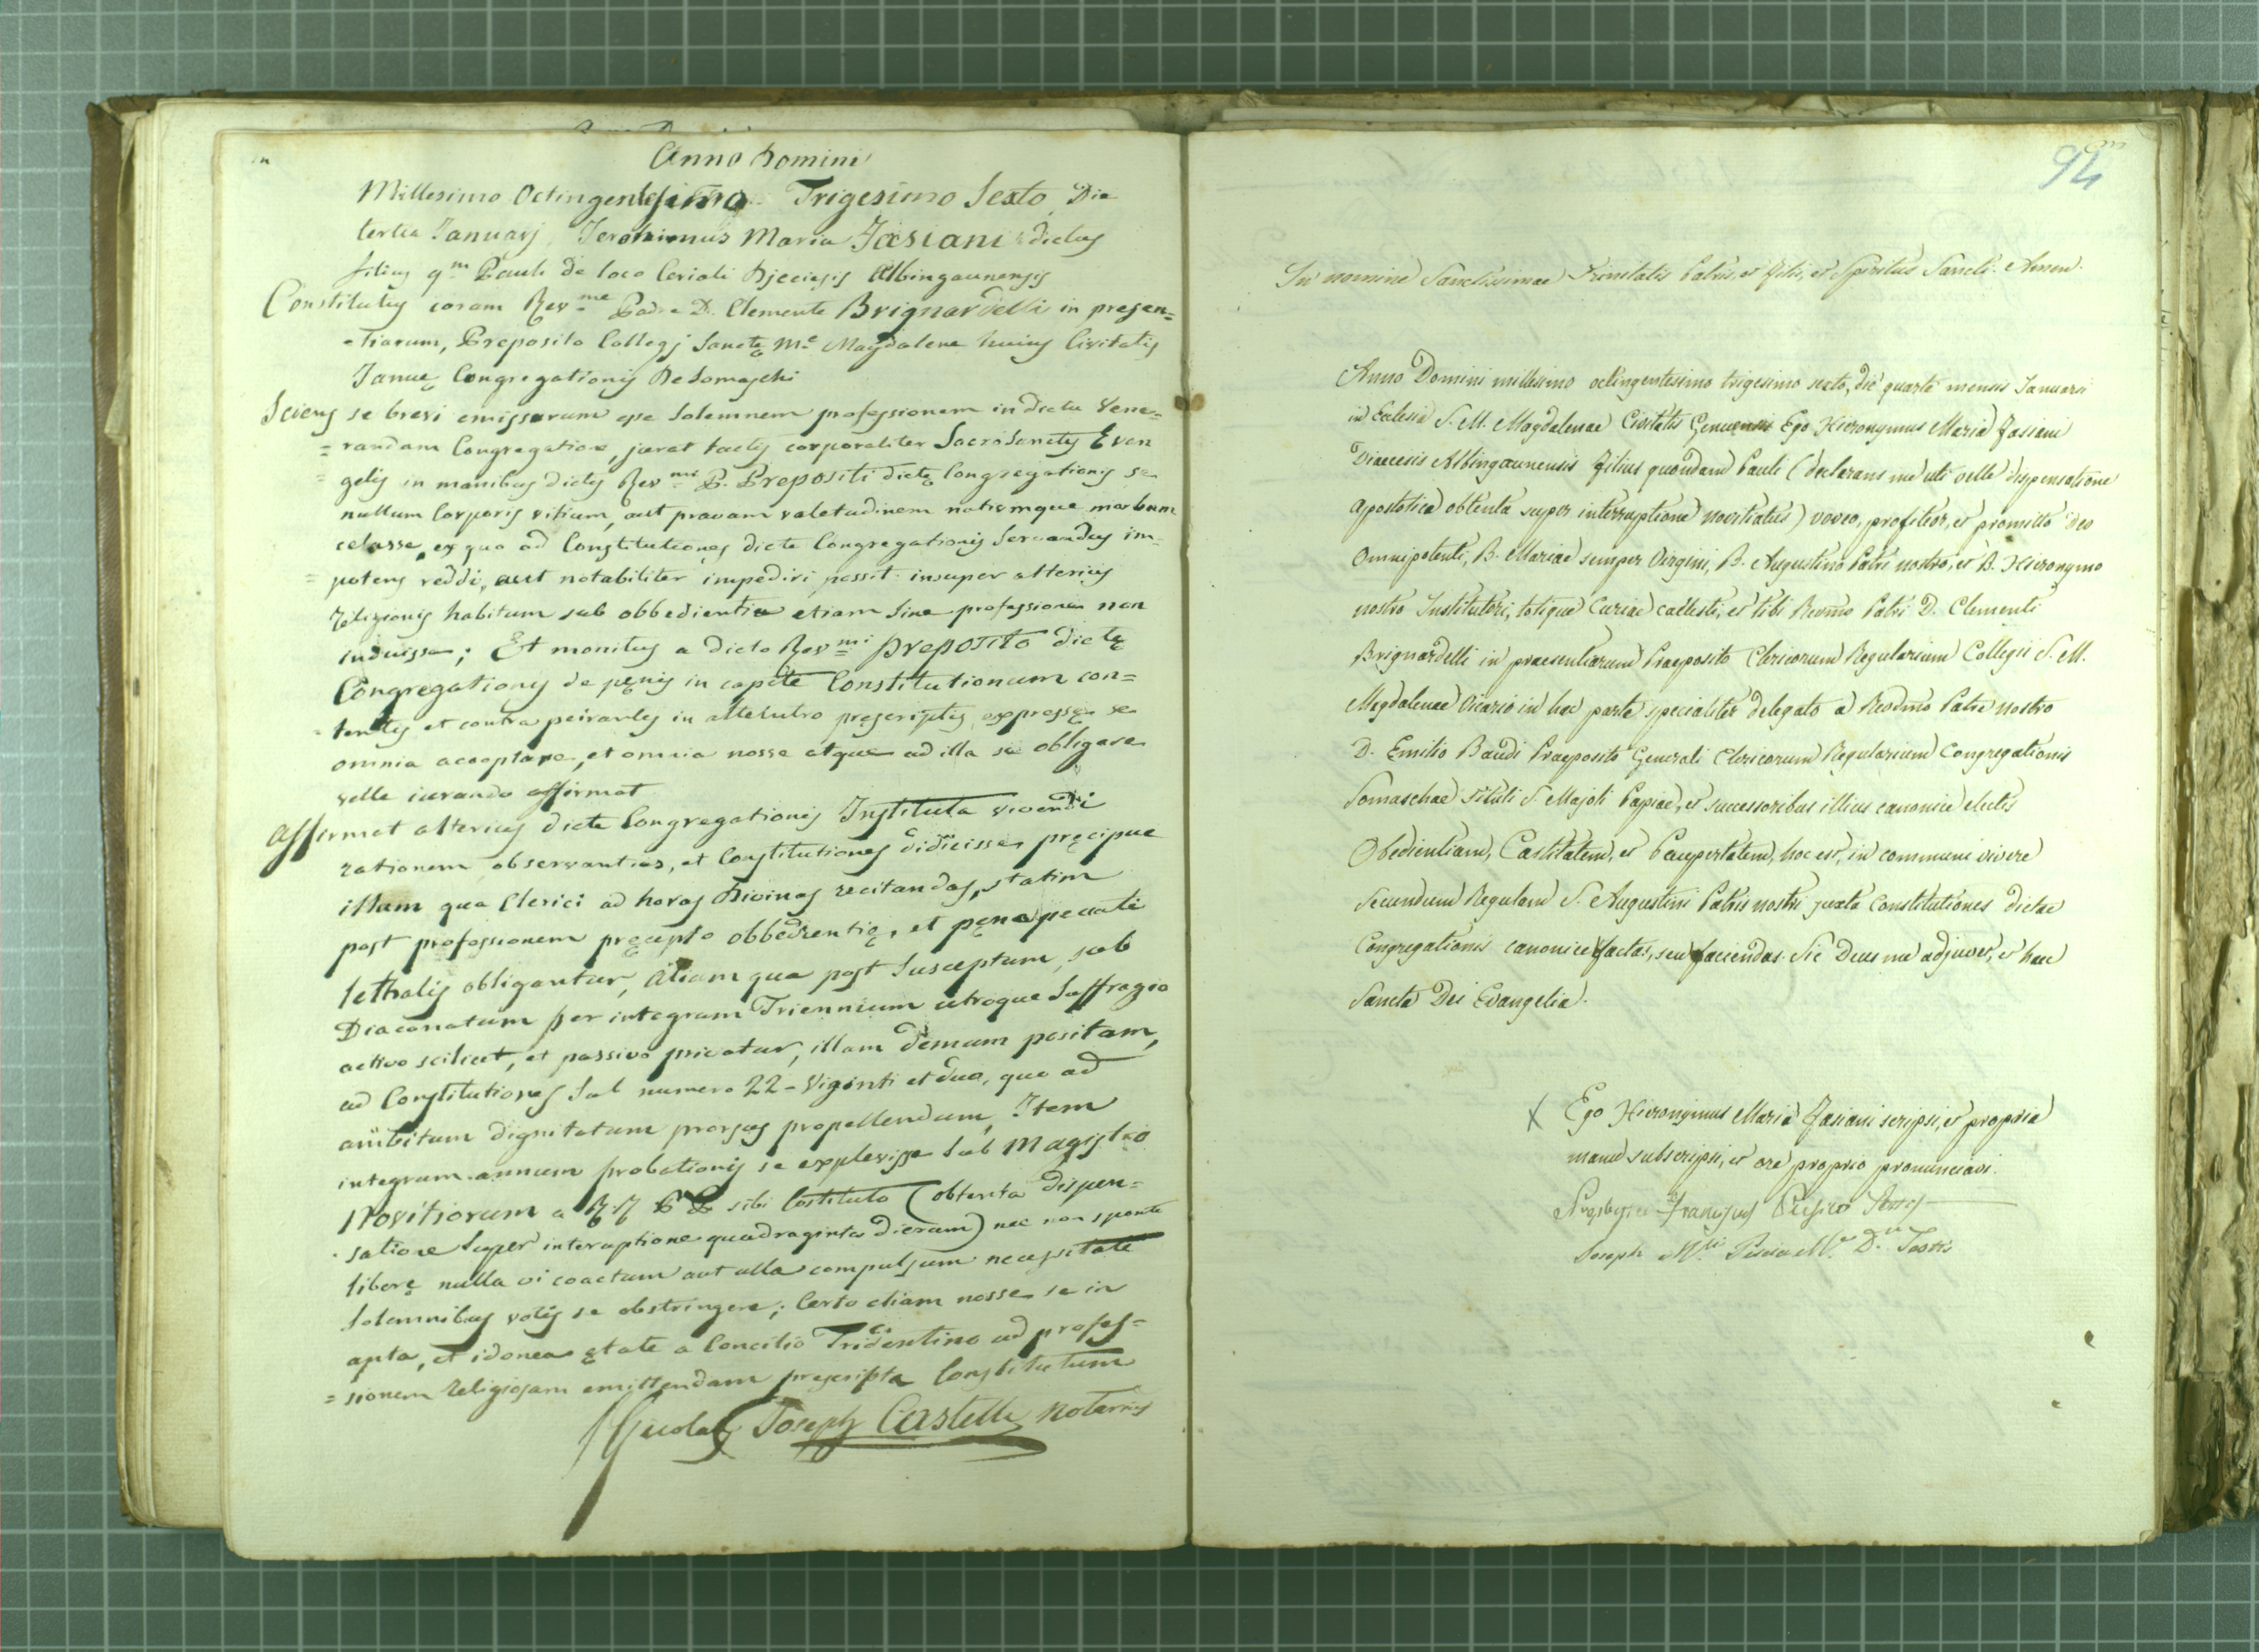 Anno Domini
Millesimo Octingentesimo Trigesimo Sexto Die
tertia Januarj, Jeronimus Maria Fasiani dictus
filius q.m Pauli de loco Cerioli Djecesis Albingaunensis
Constitutus coram Rev.me Padre D. Clemente Brignardelli in presen=
=tiarum, Preposito Collegj Sanctę M.e Magdalene huius Civitatis
Januę Congregationis De Somaschi
Sciens se brevi emissurum esse Solemnem professionem in dicta Vene=
=randam Congregatione, jurat tactis corporaliter SacroSanctis Evan
=gelis in manibus dictis Rev.mi P. Prepositi dictę Congregationis se
nullum Corporis vitium, aut pravam valetudinem notumque morbum
celasse, ex quo ad Constitutiones dicte Congregationis Servandas im=
=potens reddi, aut notabiliter impediri possit. insuper alterius
Religionis habitum sub obbedientia etiam sine professione non
induisse; Et monitus a dicto Rev.mi preposito dictę
Congregationis de pęnis in capite Constitutionum con=
=tentis et contra peirantes in attentutro pręscriptis, expresse se
omnia acceptare, et omnia nosse atque ad illa se obligare
velle iurando affirmat
Affirmat alterius dicte Congregationis Instituta vivendi
rationem observantias, et Constitutiones didicisse, pręcipue
illam qua Clerici ad horas Divinas recitandas, statim
post professionem pręcepto obbedientię, et pęna peccati
lethalis obligantur, Aliam qua post Susceptum, sub
Diaconatum per integrum Triennium utroque Suffragio
activo scilicet, et passivo privatur, illam demum positam,
ad Constitutiones Sub numero 22 - Viginti et duo, quo ad
ambitum dignitatum prorsus propellendum, Item
integrum annum probationis se explevisse Sub Magistro
Novitiorum a RR PP sibi Costituto (obtenta dispen=
=satione Super interuptione quadraginta dierum) nec non sponte
liberę nulla vi coactum aut ulla compulsum necessitate
Solemnibus votis se obstringere; Certo etiam nosse se in
apta, et idonea ętate a Concilio Tridentino ad profes=
=sionem Religiosam emittendam prescripta Constitutum
Nicolas Joseph Castelli Notarius
94
In nomine Sanctissimae Trinitatis Patris, et Filii, et Spiritus Sancti. Amen.
Anno Domini millesimo octingentesimo trigesimo sexto, die quarta mensis Januarii
in Ecclesia S. M. Magdalenae Civitatis Genuensis Ego Hieronymus Maria Fasiani
Diaecesis Albingaunensis Filius quondam Pauli (declarans me uti velle dispensatione
Apostolica obtenta super interruptione novitiatus) voveo, profiteor, et promitto Deo
Omnipotenti, B. Mariae semper Virgini, B. Augustino Patri nostro, et B. Hieronymo
nostro Institutori, totique Curiae caelesti, et tibi Rev̄mo Patri D. Clementi
Brignardelli in praesentiarum Praeposito Clericorum Regularium Collegii S. M.
Magdalenae Vicario in hac parte specialiter delegato a Revdmo Patre nostro
D. Emilio Baudi Praeposito Generali Clericorum Regularium Congregationis
Somaschae Tituli S. Majoli Papiae, et successoribus illius canonice electis
Obedientiam, Castitatem, et Paupertatem, hoc est, in communi vivere
Secundum Regulam S. Augustini Patris nostri juxta Constitutiones dictae
Congregationis canonice factas, seu faciendas. Sic Deus me adjuvet, et haec
Sancta Dei Evangelia.
X Ego Hieronymus Maria Fasiani scripsi, et propria
manu subscripsi, et ore proprio pronunciavi.
Presbyter Testis
Joseph M. D. Testis